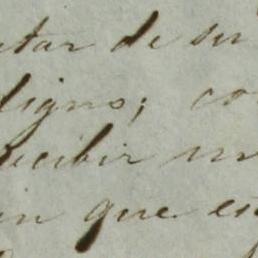 tar de su
digno; co
recibir un
en que es